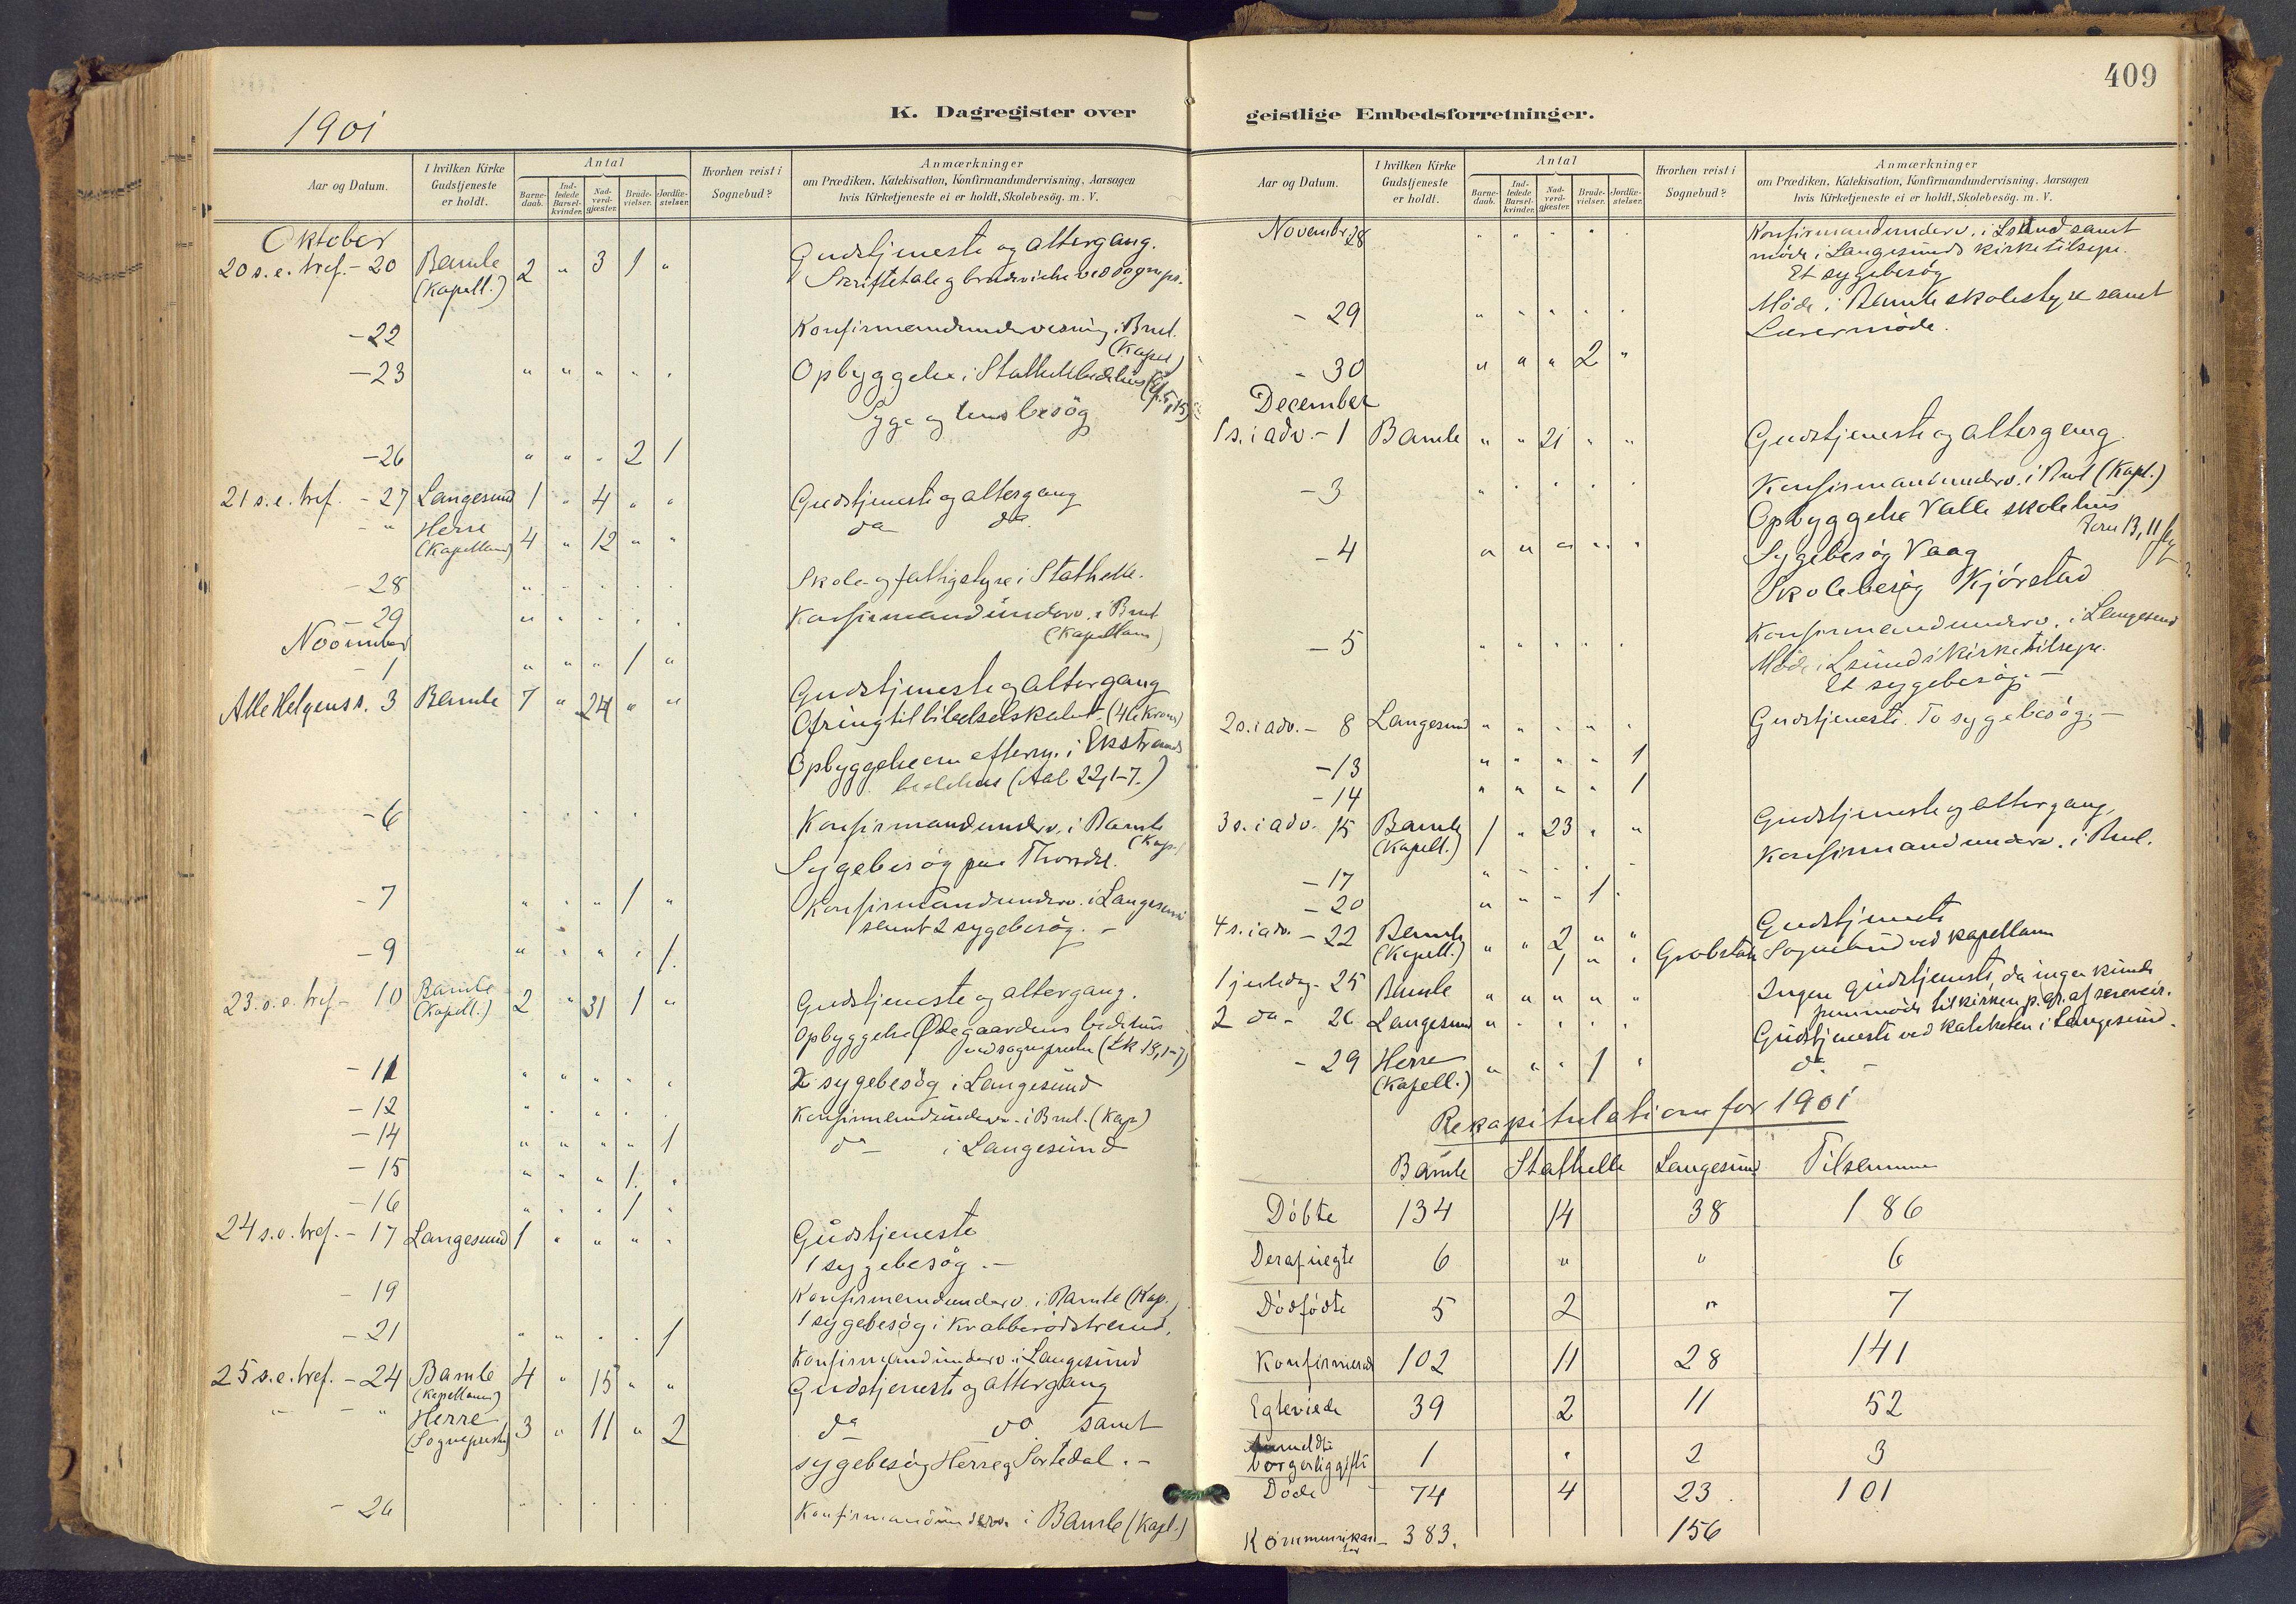 409
K. Dagregister over geistlige Embedsforretninger.
1901
Aar og Datum.
I hvilken Kirke Gudstjeneste er holdt.
Antal
Barne-daab.
Ind-ledede Barsel-kvinder.
Nad-verd-gjæster.
Brude-vielser.
Jordfæ-stelser.
Hvorhen reist i Sognebud?
Anmærkninger
om Prædiken, Katekisation, Konfirmandundervisning, Aarsagen
hvis Kirketjeneste ei er holdt, Skolebesög. m. V.
Oktober
20 s. e. tref. - 20 Bamle (Kapell.) 2 " 3 1 " Gudstjeneste og altergang.
Skriftetale og brudevielse ved sognepr.
- 22 Konfirmandundervisning i Bml. (Kapel)
- 23 " " " " " Opbyggelse i Stathelle bedehus (Ef. 5, 15)
Syge og husbesög
- 26 " " " 2 1
21 s. e. tref. - 27 Langesund 1 " 4 " " Gudstjeneste og altergang
- " Herre (Kapellan) 4 " 12 " " do do
- 28 " " " " " Skole- og fattigstyre i Stathelle.
- 29 " " " " " Konfirmandunderv. i Bml (Kapellan)
November
- 1 " " " 1 "
Alle Helgens s. 3 Bamle 7 " 24 " " Gudstjeneste og altergang
Ofring til bibelselskabet.
Opbyggelse om efterm. i Ekstrands
bedehus (Aab 22, 1-7.)
- 6 " " " " " Konfirmandunderv. i Bamle (Kap.)
Sygebesög
- 7 " " " 1 " Konfirmandunderv. i Langesund
samt 2 sygebesög. -
- 9 " " " " 1.
23. s. e. tref - 10 Bamle (Kapell.) 2 " 31 1 " Gudstjeneste og altergang.
Opbyggelse Ødegaardens bedehus
ved sognepresten (Lk 18, 1-7)
- 11 " " " " " sygebesög i Langesund
- 12 " " " " " Konfirmandunderv. i Bml. (Kap)
- 14 " " " " 1 do - i Langesund
- 15 " " " 1. "
- 16 " " " 1 "
24 s. e. tref. - 17 Langesund 1 " " " " Gudstjeneste
1 sygebesög. -
- 19 Konfirmandunderv. i Bamle (Kap.)
1 sygebesög i Krabberödstrand.
- 21 " " " " 1 Konfirmandunderv. i Langesund
25 s. e. tref. - 24 Bamle (Kapellanen) 4 " 15 " " Gudstjeneste og altergang
" - " Herre (Sognepresten) 3 " 11 " 2 do do samt
sygebesög Herre og Sortedal. -
- 26 " " " " " Konfirmandunderv. i Bamle (Kapl.)
Aar og Datum.
I hvilken Kirke Gudstjeneste er holdt.
Antal
Barne-daab.
Ind-ledede Barsel-kvinder.
Nad-verd-gjæster.
Brude-vielser.
Jordfæ-stelser.
Hvorhen reist i Sognebud?
Anmærkninger
om Prædiken, Katekisation, Konfirmandundervisning, Aarsagen
hvis Kirketjeneste ei er holdt, Skolebesög. m. V.
Novembr. 28 " " " " " Konfirmandunderv. i Lsund samt
möde i Langesunds kirketilsyn.
Et sygebesög
- 29 " " " " " Möde i Bamle skolestyre samt
Lærermöde.
- 30 " " " 2 "
December
1 s. i adv. - 1 Bamle " " 21 " " Gudstjeneste og altergang.
- 3 " " " " " Konfirmandunderv. i Bml (Kapl.)
Opbyggelse Valle skolehus
Rom 13, 11 flg
- 4 " " " " " Sygebesög Vaag
Skolebesög Kjörstad
- 5 " " " " " Konfirmandunderv. i Langesund
Möde i Lsunds kirketilsyn.
Et sygebesög. -
2 s. i adv. - 8 Langesund " " " " " Gudstjeneste. To sygebesög. -
- 13 " " " " 1
- 14 " " " " 1
3 s. i adv. 15 Bamle (Kapell.) 1 " 23 " " Gudstjeneste og altergang,
Konfirmandunderv. i Bml.
- 17 " " " " "
- 20 " " " 1 "
4 s. i adv. - 22 Bamle (Kapell.) " " 2 " " Gudstjeneste
1 " " Grobstok Sognebud ved kapellanen
1 juledag - 25 Bamle " " " " " Ingen gudstjeneste, da ingen kunde
fremmöde til kirken p. gr. af sneveir.
2 do - 26 Langesund " " " " " Gudstjeneste ved kateketen i Langesund.
- 29 Herre (Kapell.) " " " 1 " do -
Rekapitulation for 1901
Bamle Stathelle Langesund Tilsammen
Döbte 134 14 38 186
Deraf uegte 6 " " 6
Dödfödte 5 2 " 7
Konfirmerede 102 11 28 141
Egteviede 39 2 11 52
Anmeldte borgerlig gifte 1 " 2 3
Döde 74 4 23. 101
Kommunikanter - 383. 156